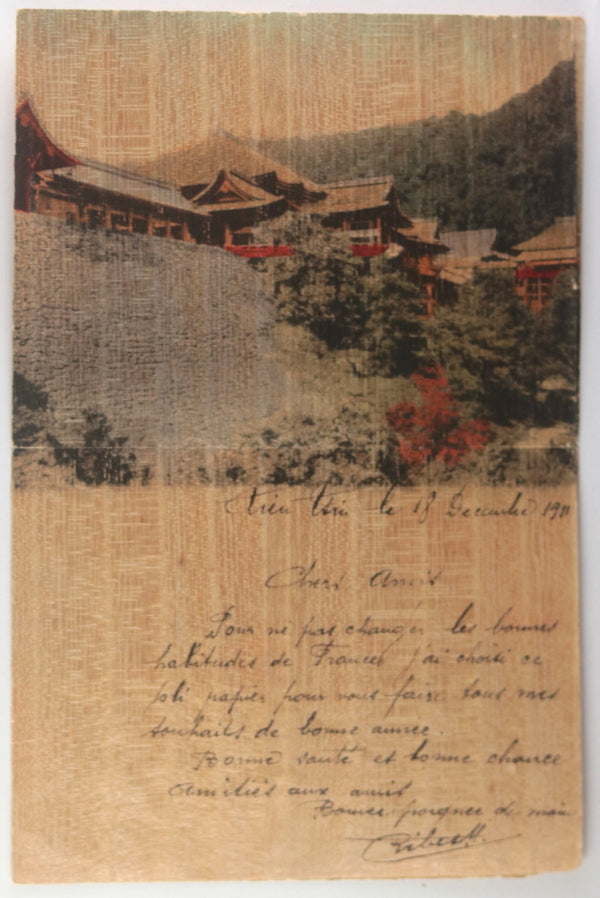 Tien Tsin le 18 Decembre 1911
Chers Amis
Pour ne pas changer les bonnes
habitudes de France j'ai choisi ce
joli papier pour vous faire tous mes
souhaits de bonne année.
Bonne santé et bonne chance
Amitiés aux amis
Bonnes poignées de main